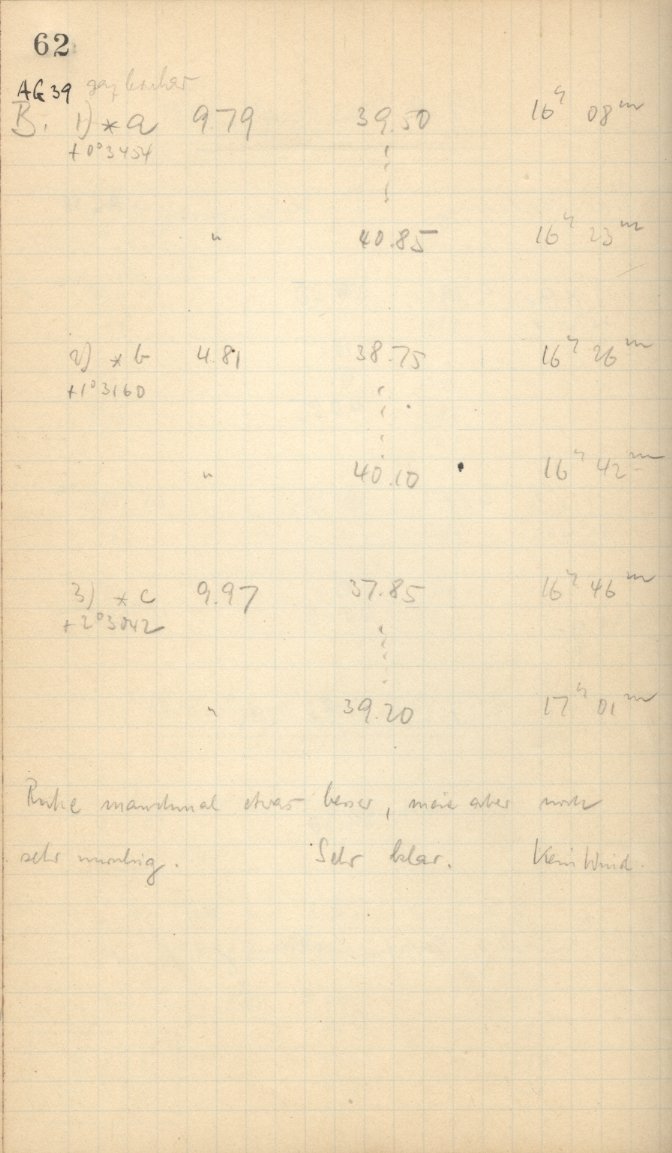 62
AG 39
B. 1) * a 9.79 39.50 16h 08m
+0°3454
" 40.85 16h 23m
2) * b 4.81 38.75 16h 26m
+1°3160
" 40.10 16h 42m
3) * c 9.97 37.85 16h 46m
+2°3042
" 39.20 17h 01m
Ruhe manchmal etwas besser, aber noch
sehr unruhig. Sehr klar. Kein Wind.